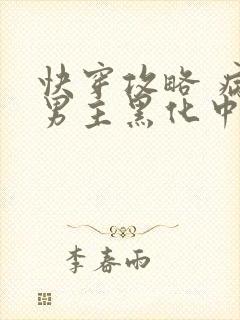 快穿攻略 病
男主黑化中
李春雨